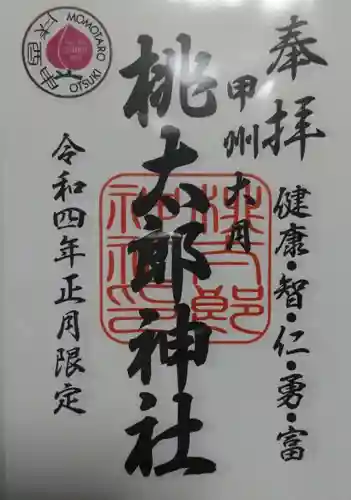 奉拝
甲州大月
健康・智・仁・勇・富
桃太郎神社
令和四年正月限定
桃太郎
神社印
MOMOTARO
OTSUKI